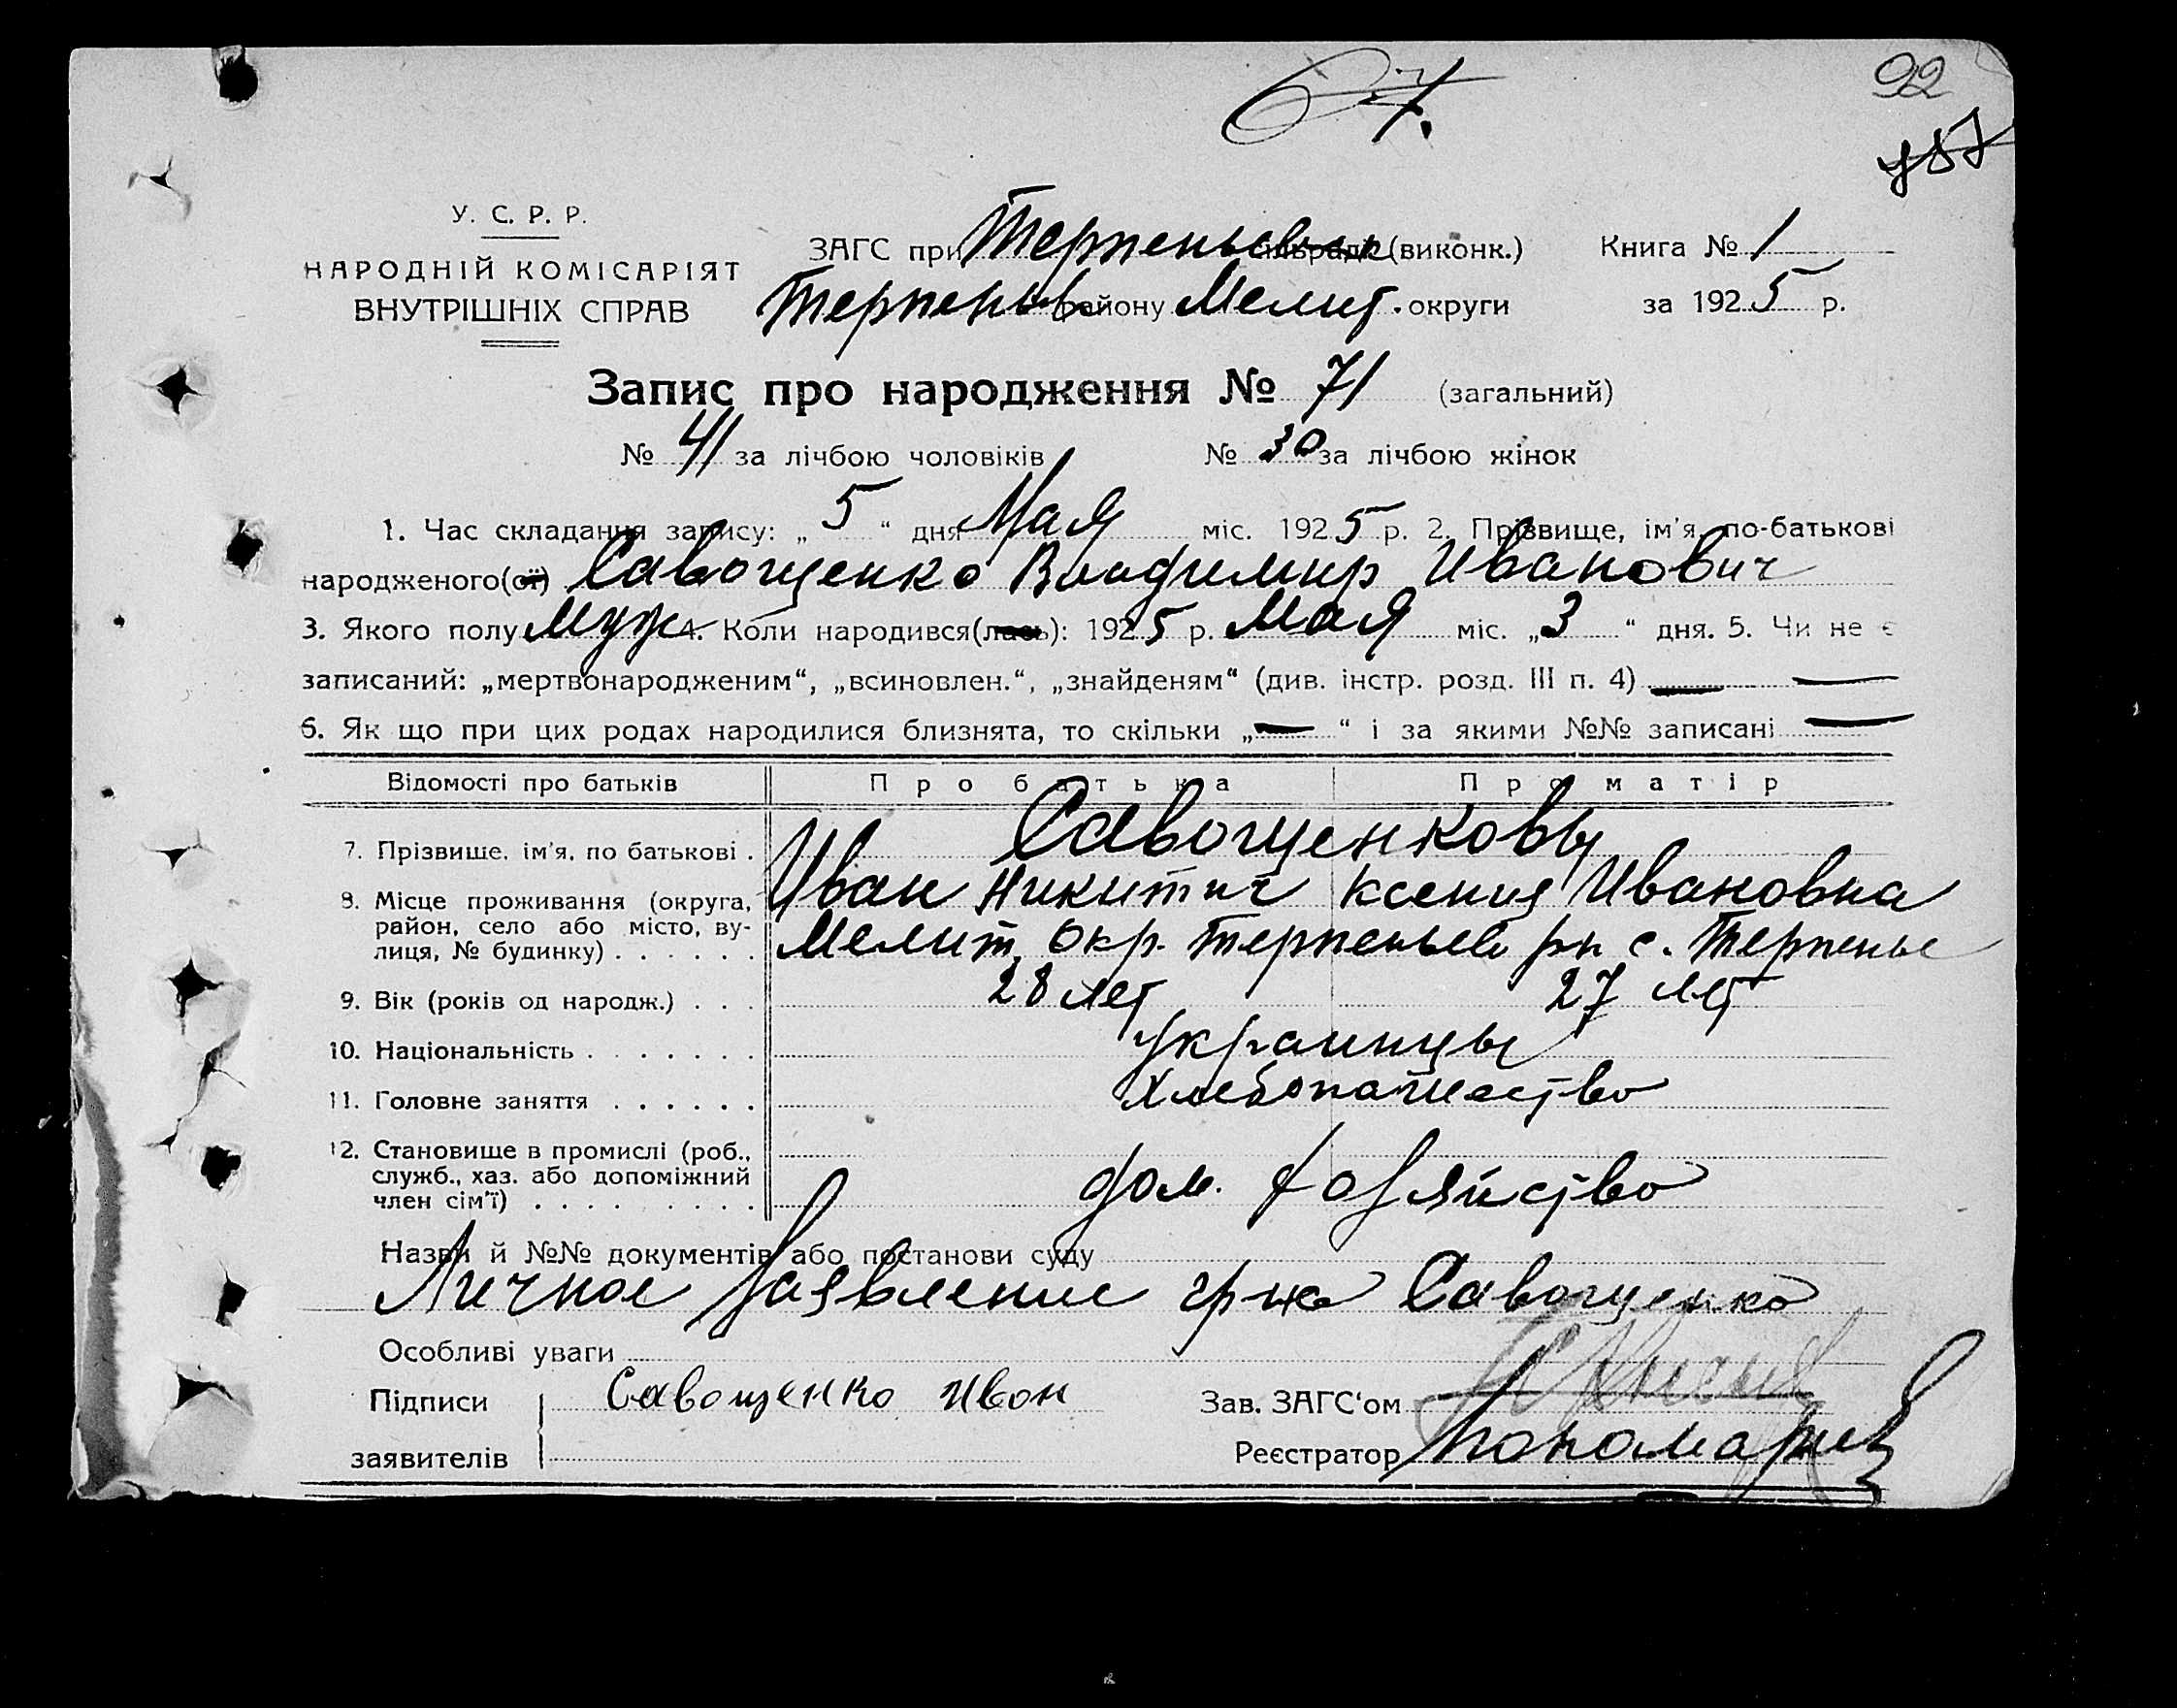 67.
92
157
У. С. Р. Р.
НАРОДНІЙ КОМІСАРІЯТ
ВНУТРІШНІХ СПРАВ
ЗАГС при Терпеньевск (виконк.) Книга № 1
Терпеньев району Мелит. округи за 1925 р.
Запис про народження № 71 (загальний)
№ 41 за лічбою чоловіків № 30 за лічбою жінок
1. Час складання запису: „5“ дня Мая міс. 1925 р. 2. Прізвище, ім'я, по-батькові
народженого(ої) Савощенко Владимир Иванович
3. Якого полу Муж 4. Коли народився(лась): 1925 р. Мая міс. „3“ дня. 5. Чи не є
записаний: „мертвонародженим“, „всиновлен.“, „знайденям“ (див. інстр. розд. III п. 4) — —
6. Як що при цих родах народилися близнята, то скільки „—“ і за якими №№ записані —
Відомості про батьків Про батька Про матір
Савощенковы
7. Прізвище, ім'я, по батькові .
Иван Никитич Ксения Ивановна
8. Місце проживання (округа,
район, село або місто, ву-
лиця, № будинку) . . . . . . Мелит. окр. Терпеньев рн с. Терпенье
9. Вік (років од народж.) . . . 28 лет 27 лет
10. Національність . . . . . . . украинцы
11. Головне заняття . . . . . . Хлебопашество
12. Становище в промислі (роб.,
служб., хаз. або допоміжний
член сім'ї) . . . . . . . . . дом. хозяйство
Назви й №№ документів або постанови суду
Личное заявление гр-на Савощенко
Особливі уваги
Підписи Савощенко Иван Зав. ЗАГС'ом
заявителів Реєстратор Пономарев